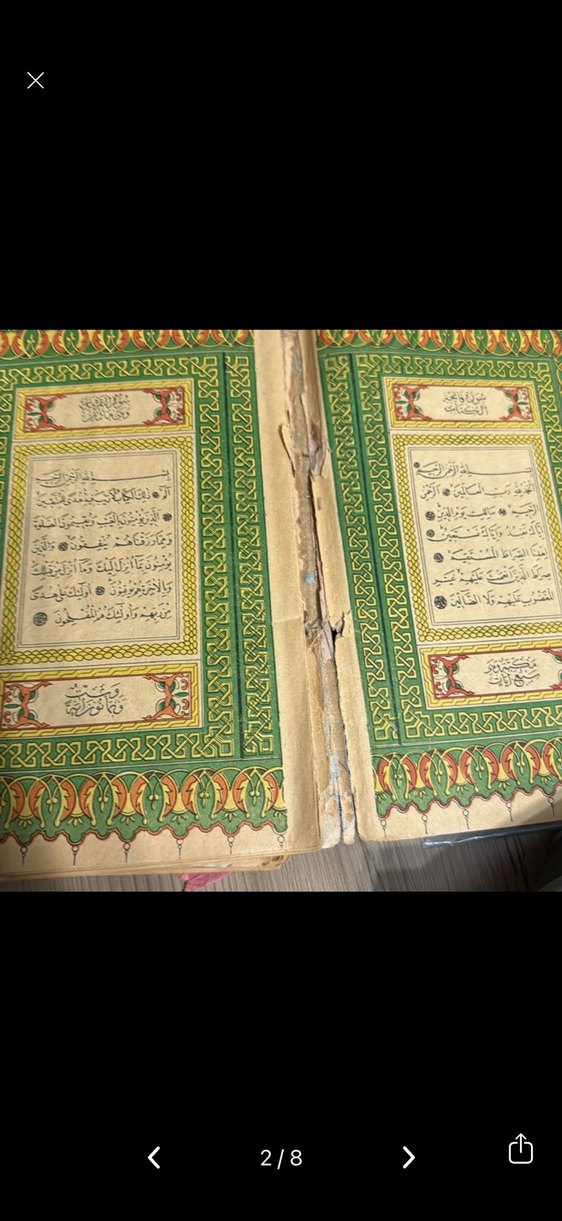 سورة فاتحة
الكتاب
بسم الله الرحمن الرحيم
الحمد لله رب العالمين الرحمن
الرحيم مالك يوم الدين
اياك نعبد واياك نستعين
اهدنا الصراط المستقيم
صراط الذين انعمت عليهم غير
المغضوب عليهم ولا الضالين
مكية وهي
سبع آيات
سورة البقرة
بسم الله الرحمن الرحيم
الم ذلك الكتاب لا ريب فيه هدى للمتقين
الذين يؤمنون بالغيب ويقيمون الصلوة
ومما رزقناهم ينفقون والذين
يؤمنون بما انزل اليك وما انزل من قبلك
وبالاخرة هم يوقنون اولئك على هدى
من ربهم واولئك هم المفلحون
وست
وثمانون آية
2 / 8